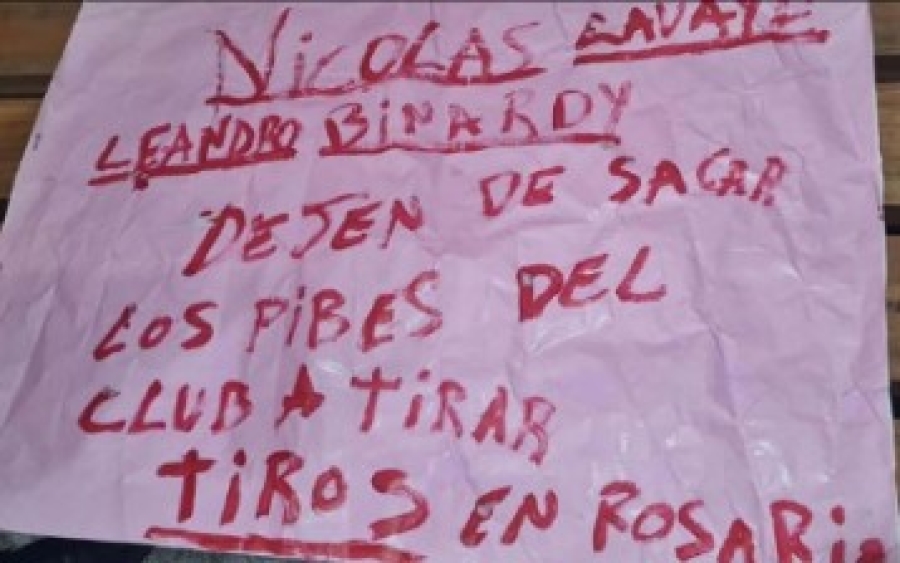 NiCOLAS LAVAYE
LEANDRO BiNARDY
DEJEN DE SACAR
LOS PiBES DEL
CLUB A TiRAR
TiROS EN ROSARio